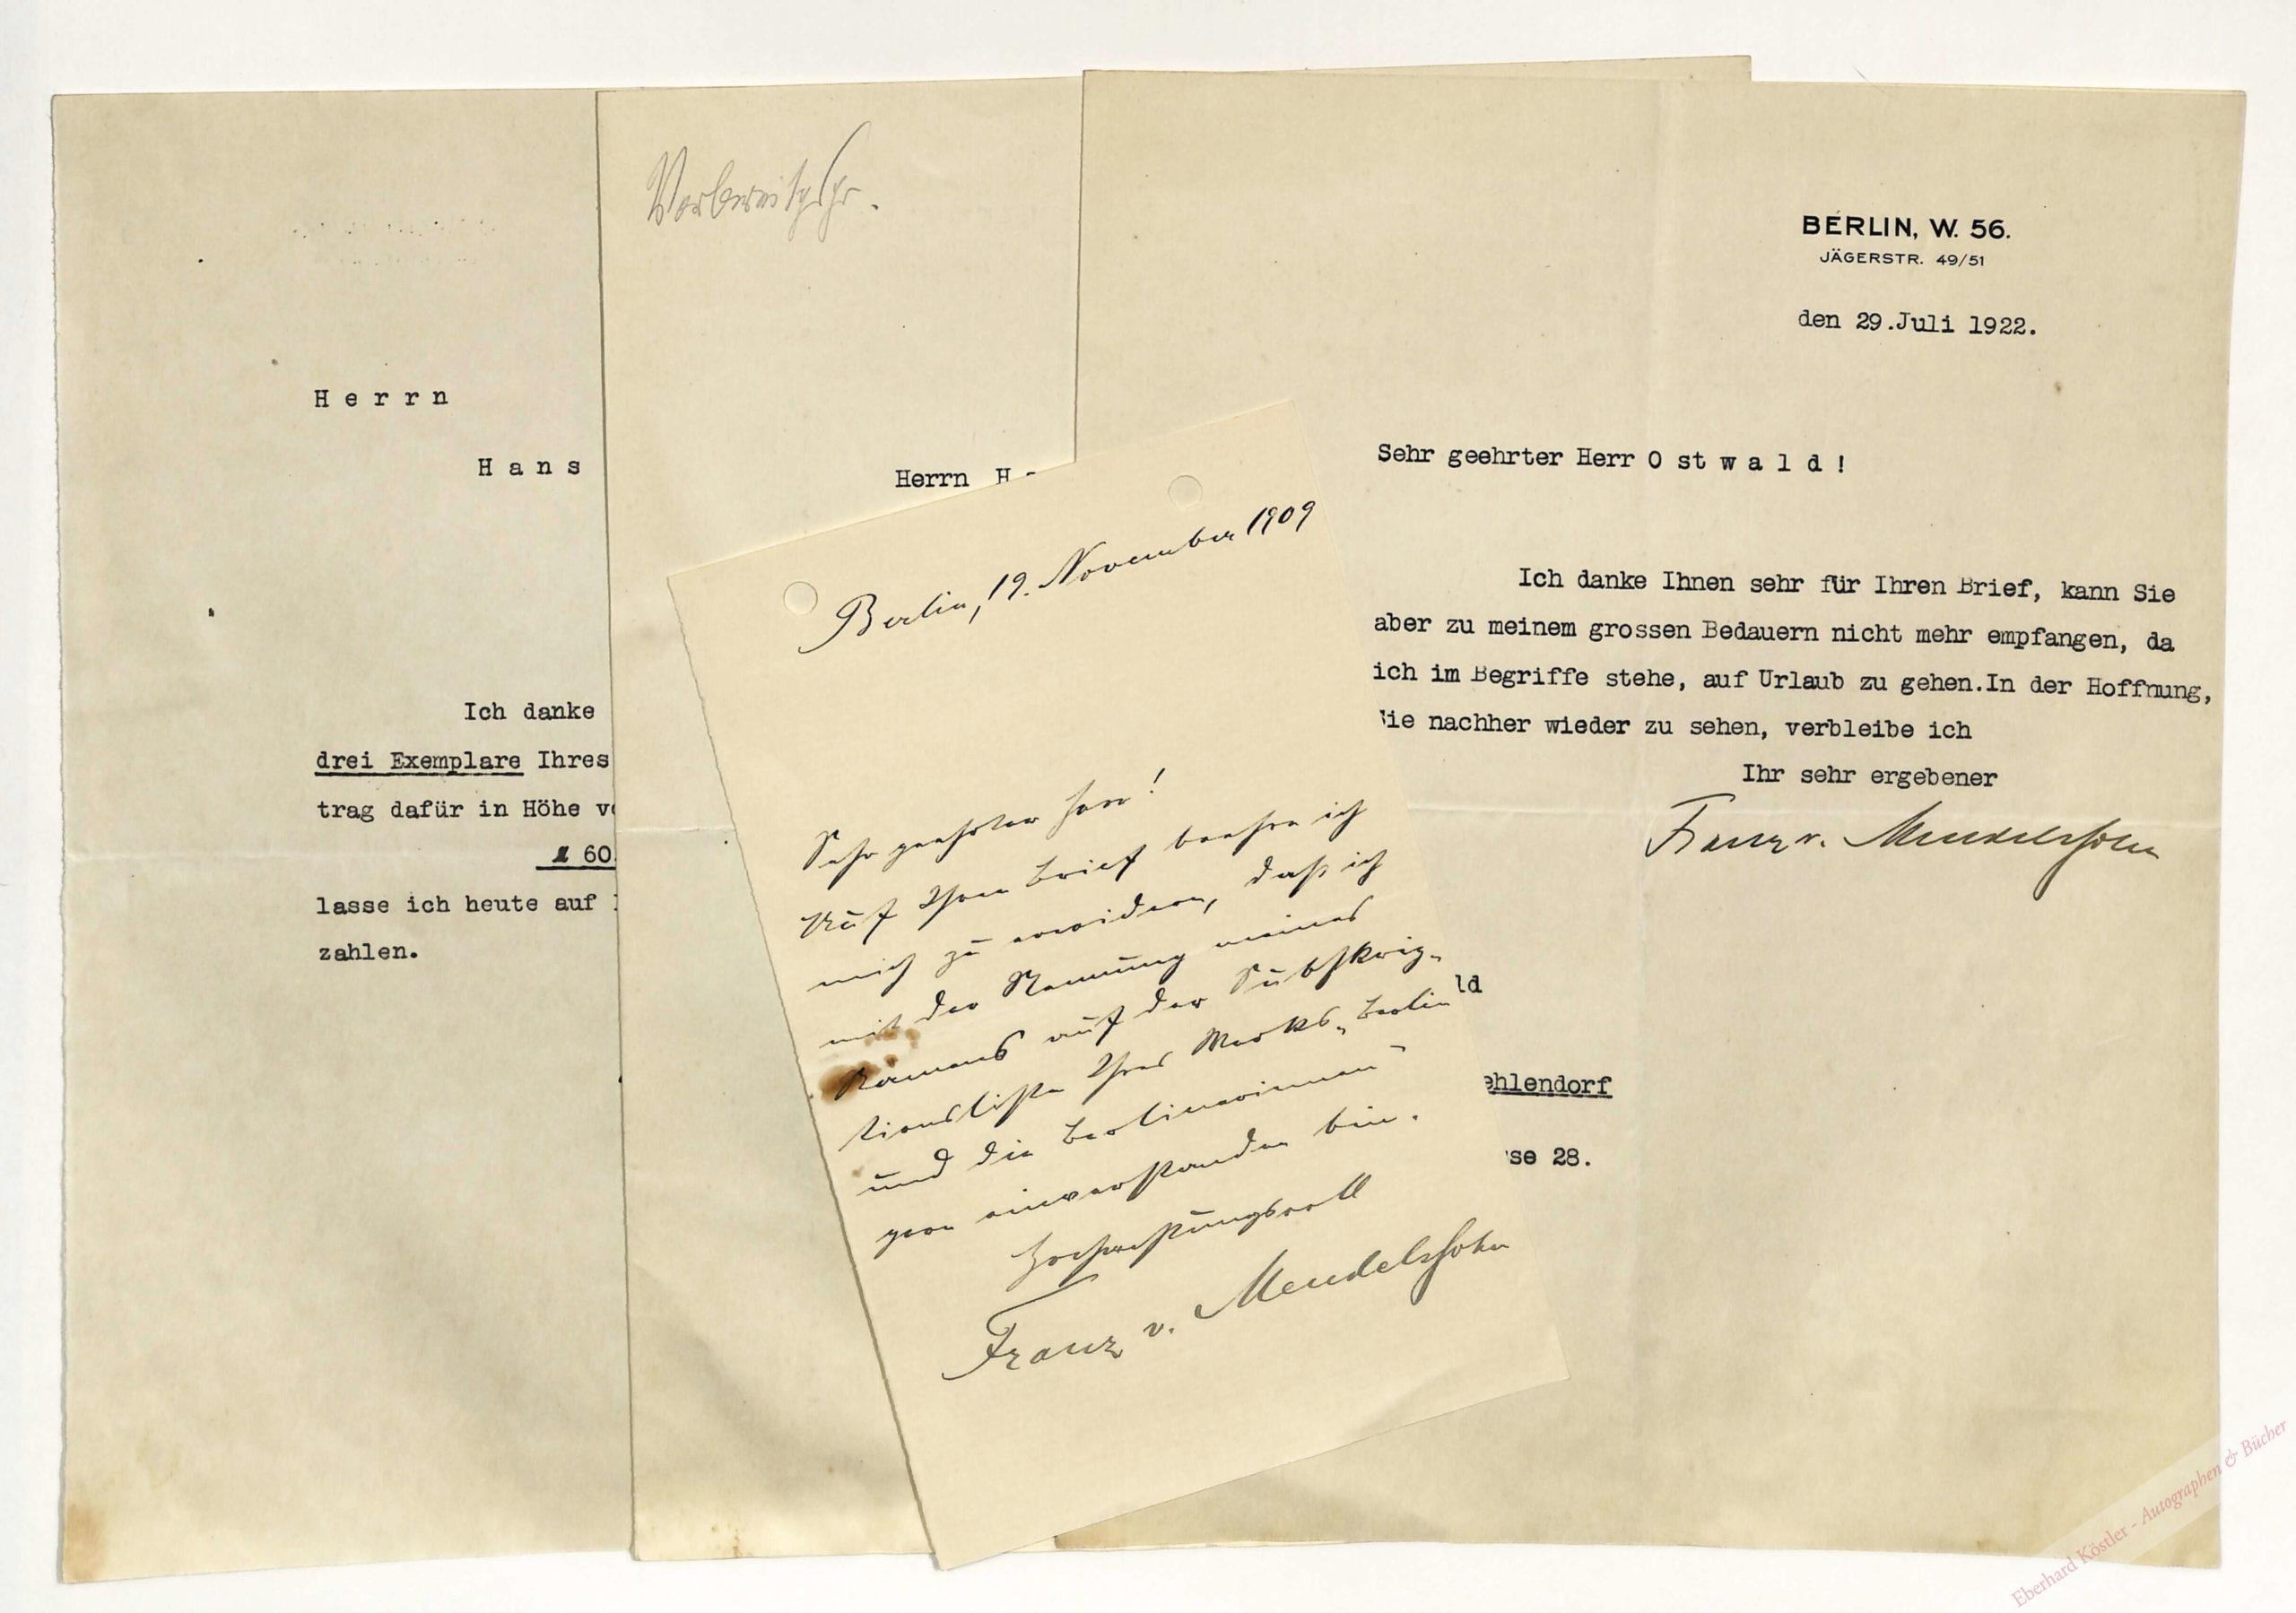 Herrn
Hans
Ich danke
drei Exemplare Ihres
trag dafür in Höhe
60
lasse ich heute auf
zahlen.
Herrn
Berlin, 19. November 1909
Sehr geehrter Herr!
Auf Ihren Brief beehre ich
mich zu erwidern, daß ich
mit der Nennung meines
Namens auf der Subskrip-
tionsliste Ihres Werks „Berlin
und die Berlinerinnen"
gern einverstanden bin.
Hochachtungsvoll
Franz v. Mendelssohn
BERLIN, W. 56.
JÄGERSTR. 49/51
den 29.Juli 1922.
Sehr geehrter Herr Ostwald!
Ich danke Ihnen sehr für Ihren Brief, kann Sie
aber zu meinem grossen Bedauern nicht mehr empfangen, da
ich im Begriffe stehe, auf Urlaub zu gehen.In der Hoffnung,
Sie nachher wieder zu sehen, verbleibe ich
Ihr sehr ergebener
Franz v. Mendelssohn
ld
ehlendorf
se 28.
Eberhard Köstler - Autographen & Bücher